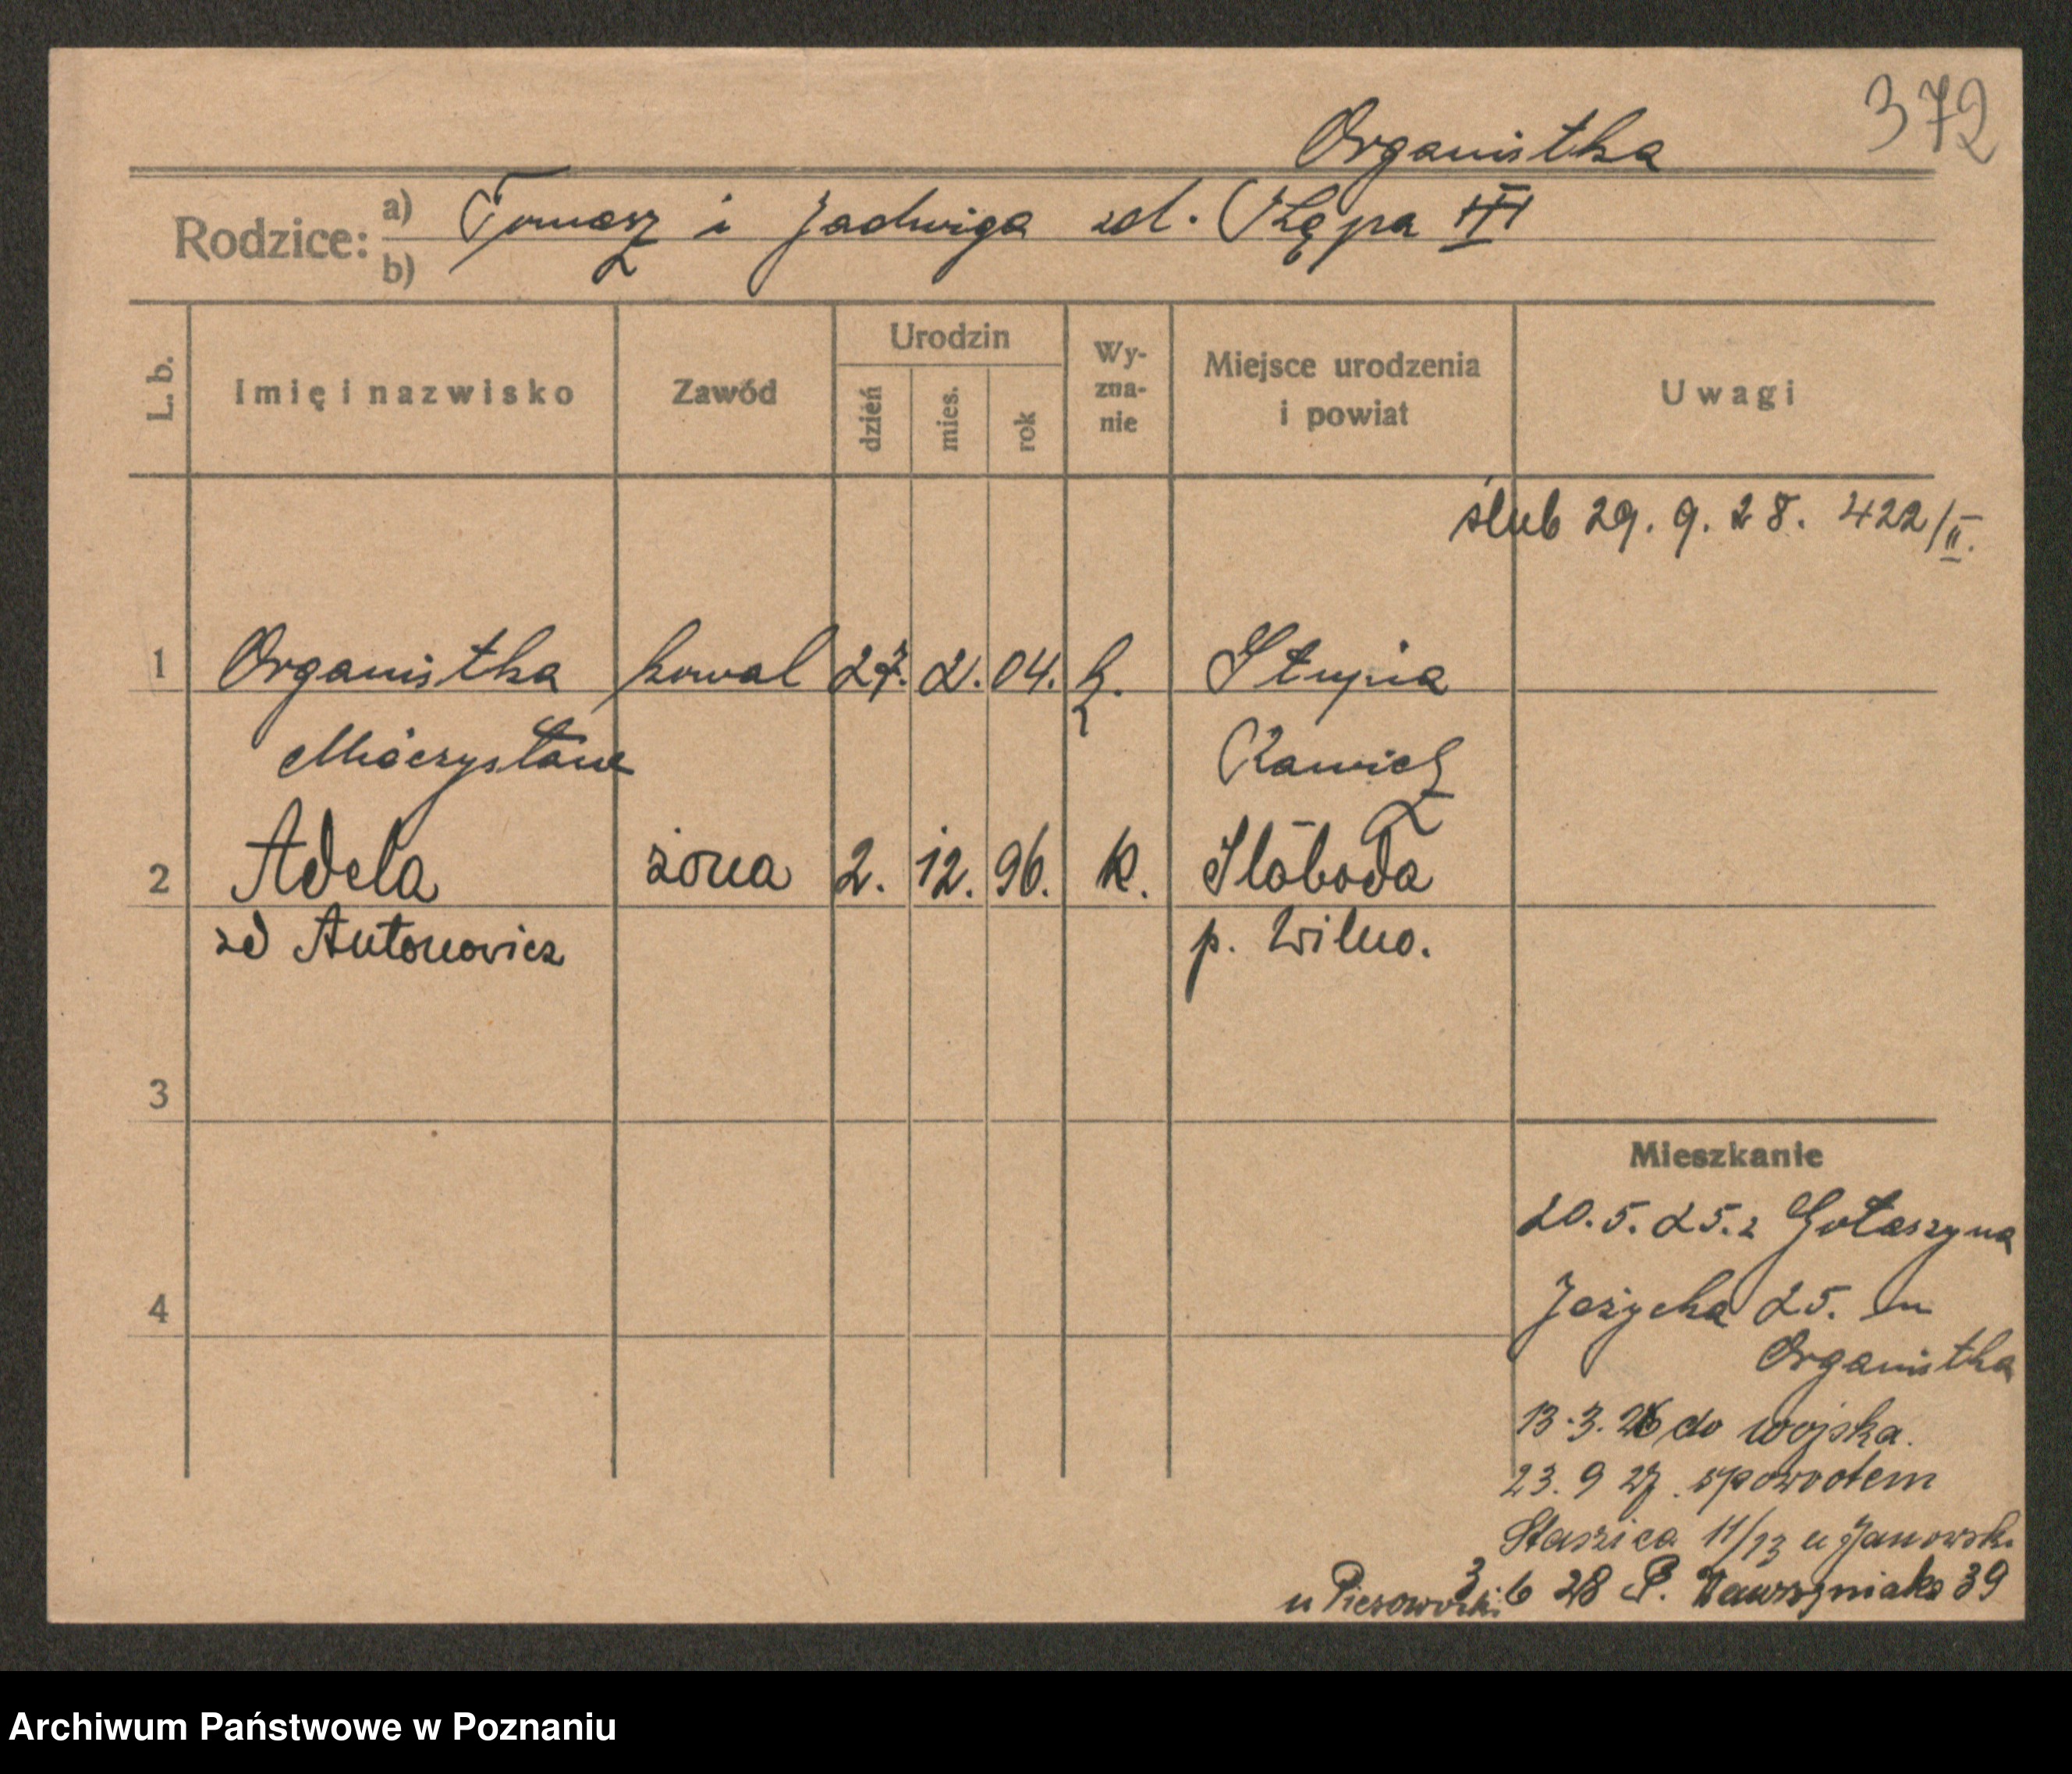 372
Organistka
Rodzice: a) Tomasz i Jadwiga zd. Rzępa III
b)
L. b. Imię i nazwisko Zawód Urodzin dzień mies. rok Wy-zna-nie Miejsce urodzenia i powiat Uwagi
ślub 29. 9. 28. 422/II.
1 Organistka kowal 27. 2. 04. k. Słupia
Mieczysław Rawicz
2 Adela żona 2. 12. 96. k. Słoboda
zd Antonowicz p. Wilno.
3
Mieszkanie
20. 5. 25. z Gołaszyna
4 Jeżycka 25. u
Organistka
13. 3. 26 do wojska.
23. 9 27. spowrotem
Staszica 11/13 u Janowsk.
3 6 28 P. Wawrzyniaka 39
u
Archiwum Państwowe w Poznaniu